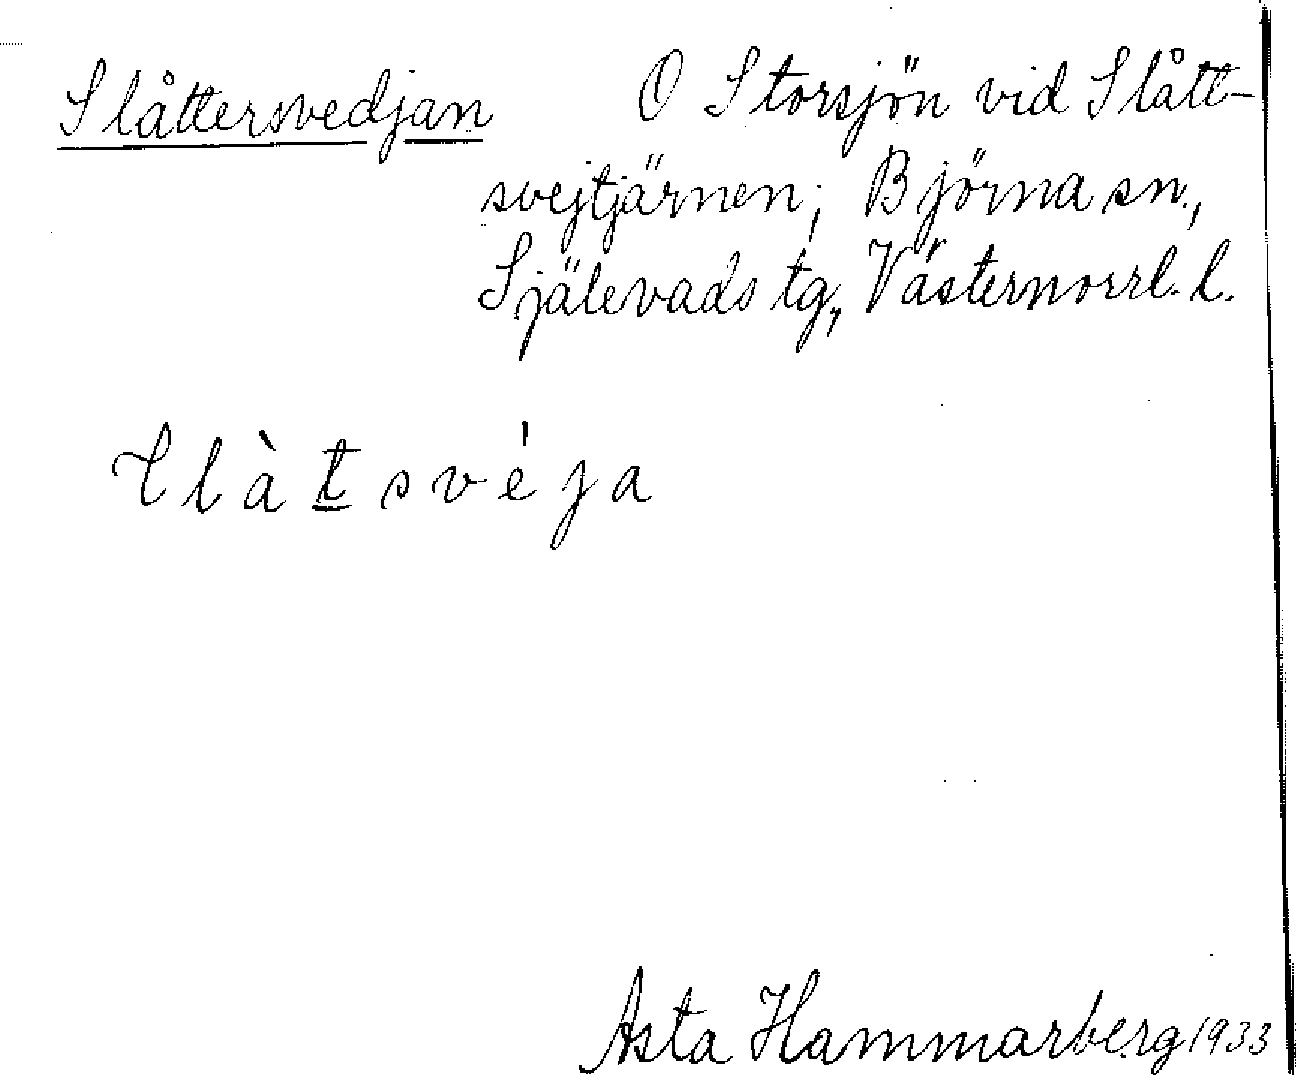 Slåttersvedjan O Storsjön vid Slått-
svejtjärnen; Björna sn.,
Själevads tg., Västernorrl. l.
tlàt̲svéja
Asta Hammarberg 1933